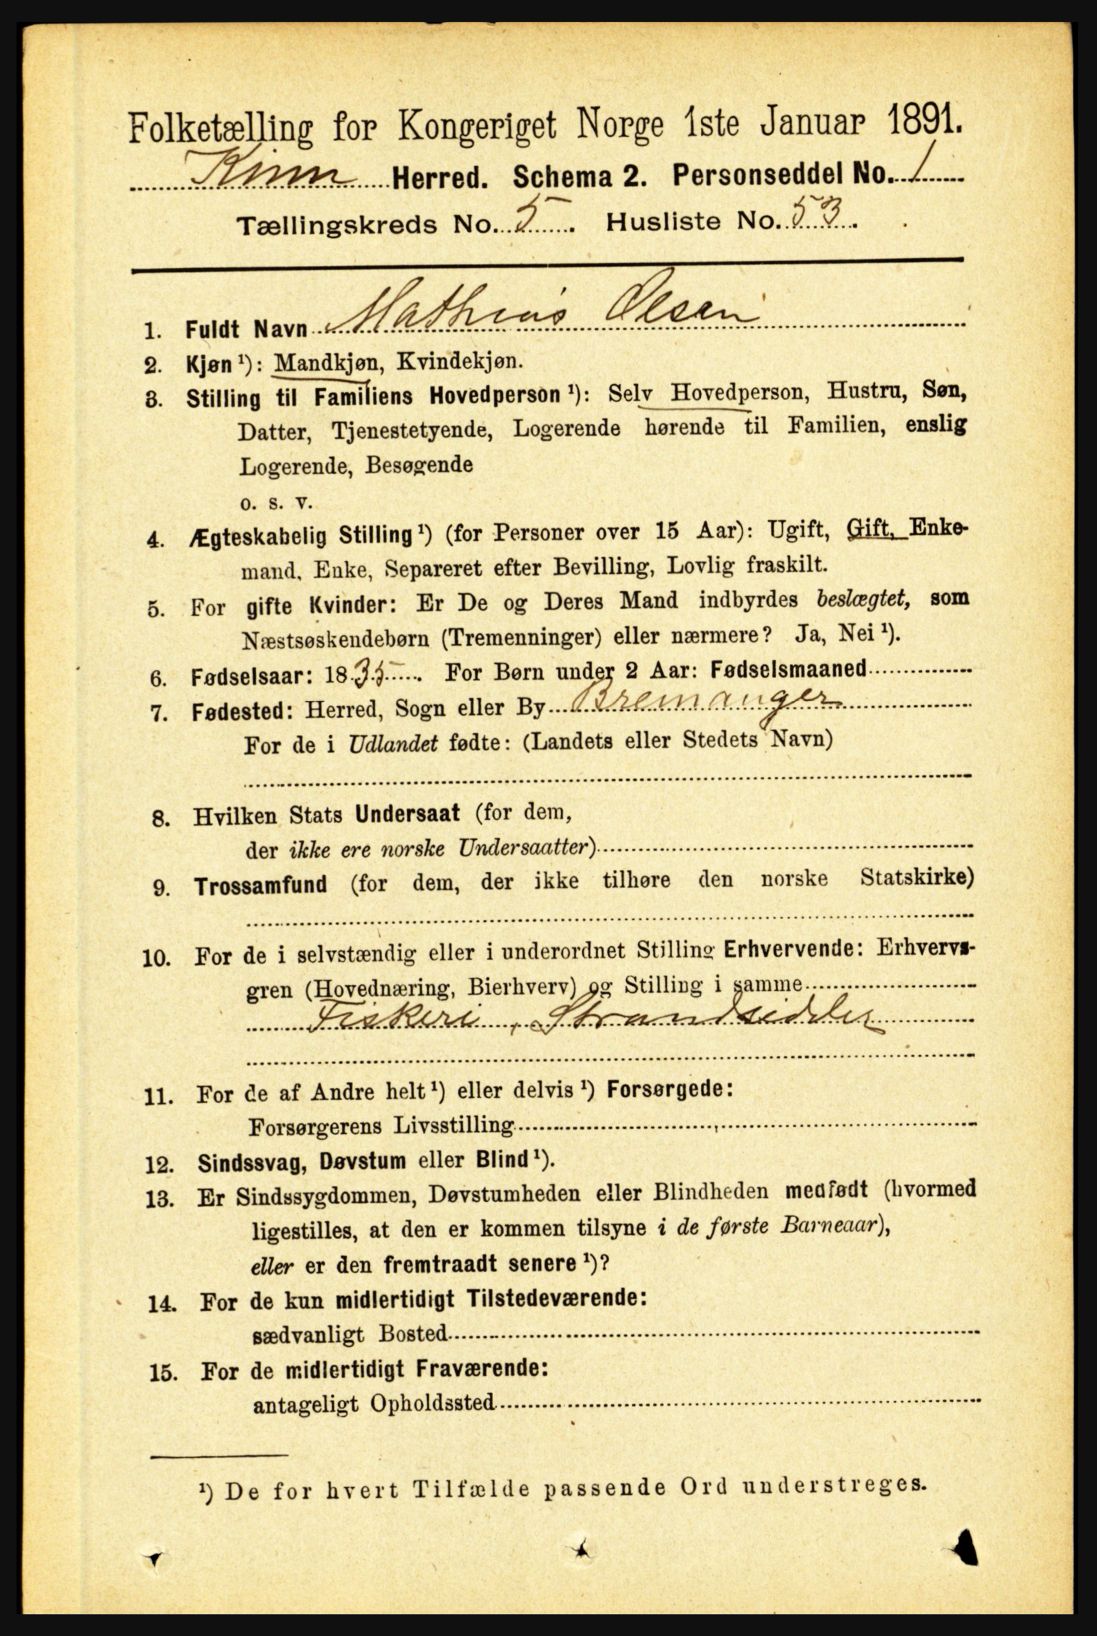 Folketælling for Kongeriget Norge 1ste Januar 1891.
Kinn Herred. Schema 2. Personseddel No. 1
Tællingskreds No. 5. Husliste No. 53.
1. Fuldt Navn Mathias Olsen
2. Kjøn ¹): Mandkjøn, Kvindekjøn.
3. Stilling til Familiens Hovedperson ¹): Selv Hovedperson, Hustru, Søn,
Datter, Tjenestetyende, Logerende hørende til Familien, enslig
Logerende, Besøgende
o. s. v.
4. Ægteskabelig Stilling ¹) (for Personer over 15 Aar): Ugift, Gift, Enke-
mand, Enke, Separeret efter Bevilling, Lovlig fraskilt.
5. For gifte Kvinder: Er De og Deres Mand indbyrdes beslægtet, som
Næstsøskendebørn (Tremenninger) eller nærmere? Ja, Nei ¹).
6. Fødselsaar: 1835. For Børn under 2 Aar: Fødselsmaaned
7. Fødested: Herred, Sogn eller By Bremanger
For de i Udlandet fødte: (Landets eller Stedets Navn)
8. Hvilken Stats Undersaat (for dem,
der ikke ere norske Undersaatter)
9. Trossamfund (for dem, der ikke tilhøre den norske Statskirke)
10. For de i selvstændig eller i underordnet Stilling Erhvervende: Erhvervs-
gren (Hovednæring, Bierhverv) og Stilling i samme
Fiskeri, Strandsidder
11. For de af Andre helt ¹) eller delvis ¹) Forsørgede:
Forsørgerens Livsstilling
12. Sindssvag, Døvstum eller Blind ¹).
13. Er Sindssygdommen, Døvstumheden eller Blindheden medfødt (hvormed
ligestilles, at den er kommen tilsyne i de første Barneaar),
eller er den fremtraadt senere ¹)?
14. For de kun midlertidigt Tilstedeværende:
sædvanligt Bosted
15. For de midlertidigt Fraværende:
antageligt Opholdssted
¹) De for hvert Tilfælde passende Ord understreges.